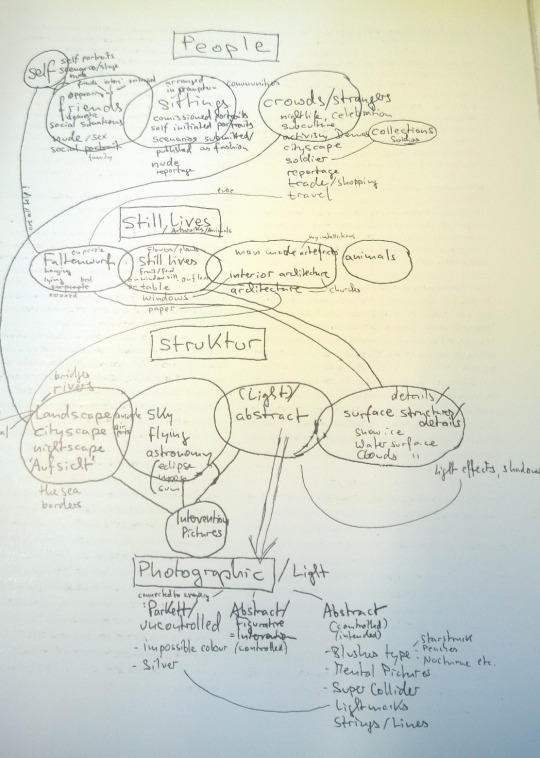 People
self
self portraits
nude
friends
social situations
nude/sex
social portrait
family
arranged
Sittings
comissioned portraits
self initiated portraits
scenarios submitted/
published as fashion
nude
reportage
communities
crowds/strangers
nightlife, celebration
subculture
activism Demos
cityscape
soldier
reportage
trade/shopping
travel
collections
Soldiers
tube
Still Lives
/Artworks/Animals
Faltenwurf
hanging
lying bed
Flowers/plants
still lives
Fruit/food
on table
windows
paper
man made artefacts
interior architecture
architecture
churches
animals
Struktur
bridges
rivers
Landscape
cityscape
nightscape
'Aufsicht'
the sea
borders
sky
flying
astronomy
(eclipse
sun
(Light)/
abstract
details/
surface structures/
details
snow ice
Water surface
Clouds "
Light effects, shadows
Intervention
Pictures
Photographic / Light
:Parkett/
uncontrolled
- impossible colour
- Silver
Abstract/
Figurative
= Intervention
(controlled)
Abstract
(controlled)
/intended)
- Blushes type
Starstruck
Peaches
Nocturne etc.
- Mental Pictures
- Super Collider
- Lightmarks
Strings/Lines